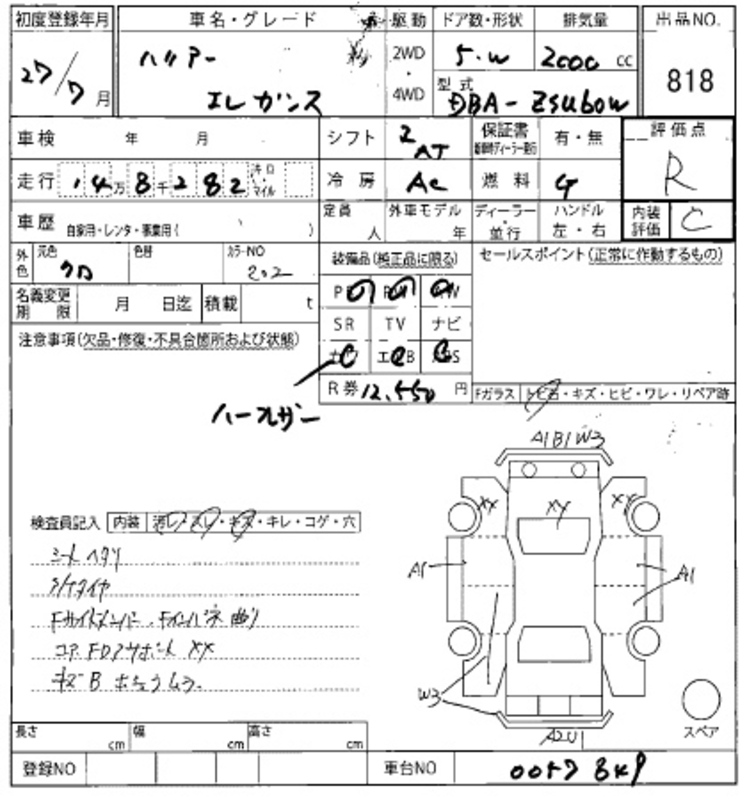 初度登録年月 車名・グレード 駆動 ドア数・形状 排気量 出品NO.
27/7月 ハリアー 2WD・4WD 5・W 2000cc 818
エレガンス 型式 DBA-ZSU60W
車検 年 月 シフト AT 保証書 有・無 評価点 R
走行 14万8千282 キロ・マイル 冷房 AC 燃料 G
車歴 自家用・レンタ・事業用( ) 定員 人 外車モデル 年 ディーラー・並行 ハンドル 左・右 内装評価 C
外色 元色 クロ 色替 カラーNO 202 装備品(純正品に限る) セールスポイント(正常に作動するもの)
名義変更期限 月 日迄 積載 t
注意事項(欠品・修復・不具合箇所および状態)
SR TV ナビ
R券 12,550円 Fガラス トビ石・キズ・ヒビ・ワレ・リペア跡
ハーフレザー
A1B1W3
XX XX XX
検査員記入 内装 汚レ・スレ・キズ・キレ・コゲ・穴
シートヘタリ
A1 A1
Fサイドメンバー、Fインパネ曲り
コアFDアサポート XX
W3
A2U
スペア
長さ cm 幅 cm 高さ cm
登録NO 車台NO 0057849